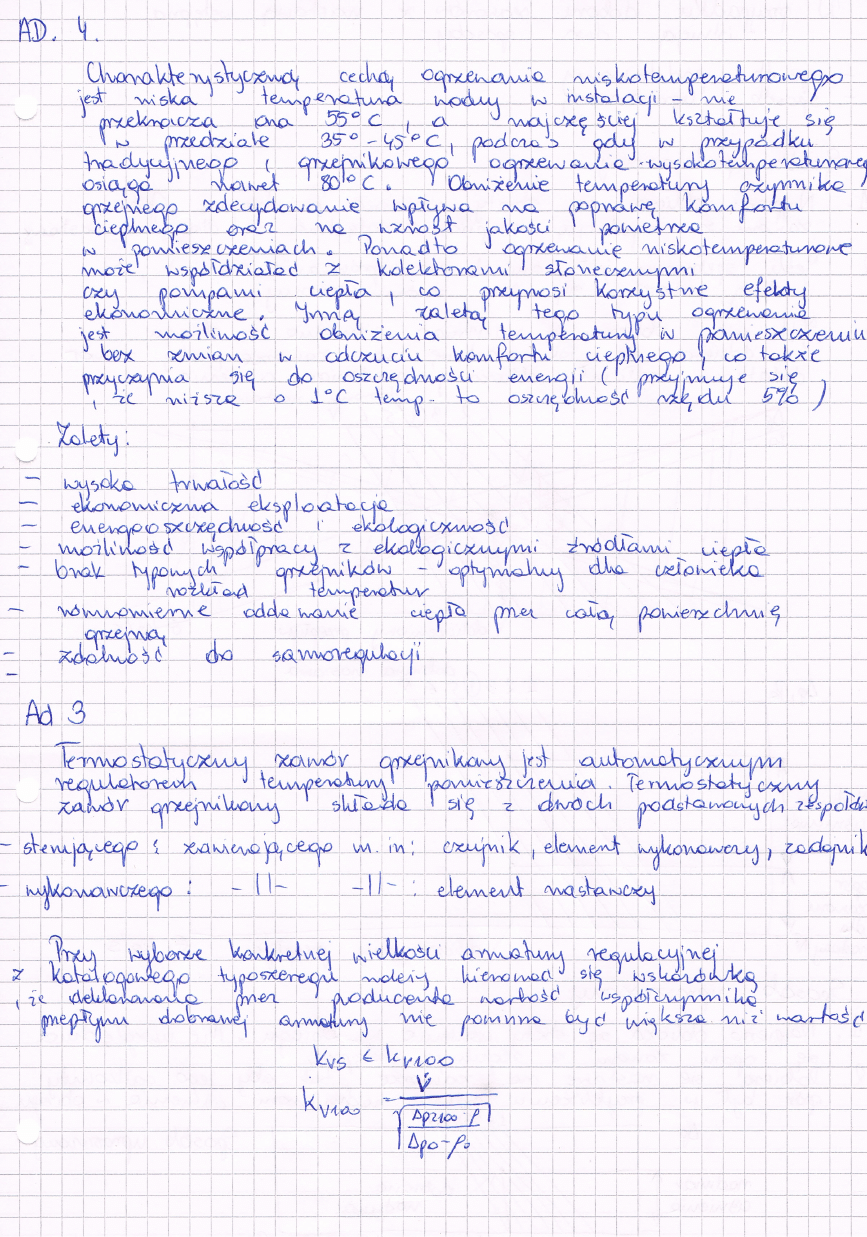 AD. 4.
Charakterystyczną cechą ogrzewania niskotemperaturowego
jest niska temperatura wody w instalacji - nie
przekracza ona 55°C, a najczęściej kształtuje się
w przedziale 35° - 45°C, podczas gdy w przypadku
tradycyjnego, grzejnikowego ogrzewania wysokotemperaturoweg
osiąga nawet 80°C. Obniżenie temperatury czynnika
grzejnego zdecydowanie wpływa na poprawę komfortu
cieplnego oraz na wzrost jakości powietrza
w pomieszczeniach. Ponadto ogrzewanie niskotemperaturowe
może współdziałać z kolektorami słonecznymi
czy pompami ciepła, co przynosi korzystne efekty
ekonomiczne. Inną zaletą tego typu ogrzewania
jest możliwość obniżenia temperatury w pomieszczeniu
bez zmian w odczuciu komfortu cieplnego, co także
przyczynia się do oszczędności energii (przyjmuje się
, że niższa o 1°C temp. to oszczędność rzędu 5%)
Zalety:
- wysoka trwałość
- ekonomiczna eksploatacja
- energooszczędność i ekologiczność
- możliwość współpracy z ekologicznymi źródłami ciepła
- brak typowych grzejników - optymalny dla człowieka
rozkład temperatur
- równomierne oddawanie ciepła przez całą powierzchnię
grzejną
- zdolność do samoregulacji
-
Ad 3
Termostatyczny zawór grzejnikowy jest automatycznym
regulatorem temperatury pomieszczenia. Termostatyczny
zawór grzejnikowy składa się z dwóch podstawowych zespołów
- sterującego : zawierającego m.in: czujnik, element wykonawczy, zadajnik
- wykonawczego : -||- -||- : element nastawczy
Przy wyborze konkretnej wielkości armatury regulacyjnej
z katalogowego typoszeregu należy kierować się wskazówką
, że deklarowana przez producenta wartość współczynnika
przepływu dobranej armatury nie powinna być większa niż wartość
kvs ≤ kv100
kv100 = V̇ / √(Δpz100·ρ / Δp0-ρ0)